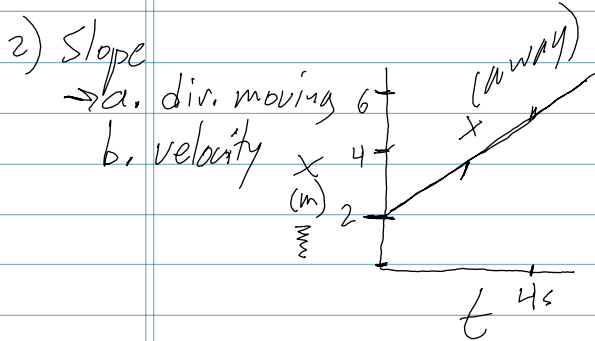 2) Slope
→ a. dir. moving
b. velocity
X
(m)
6
4
2
X (away)
t
4s